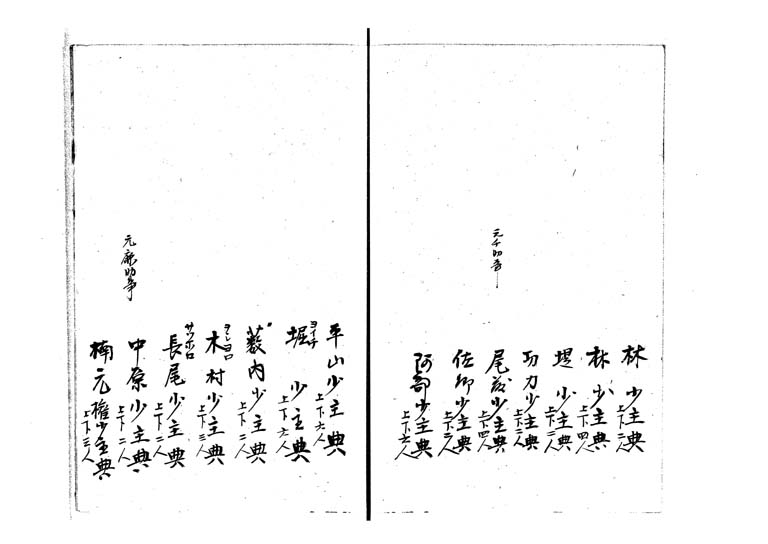 林少主典
上下二人
林少主典
上下四人
堤少主典
上下二人
功力少主典
上下二人
尾少主典
上下四人
佐少主典
上下二人
阿部少主典
上下六人
平山少主典
上下六人
ヨイチ
堀少主典
上下六人
藪内少主典
上下二人
木村少主典
上下三人
サッホロ
長尾少主典
上下二人
中原少主典
上下二人
楠元権少主典
上下三人